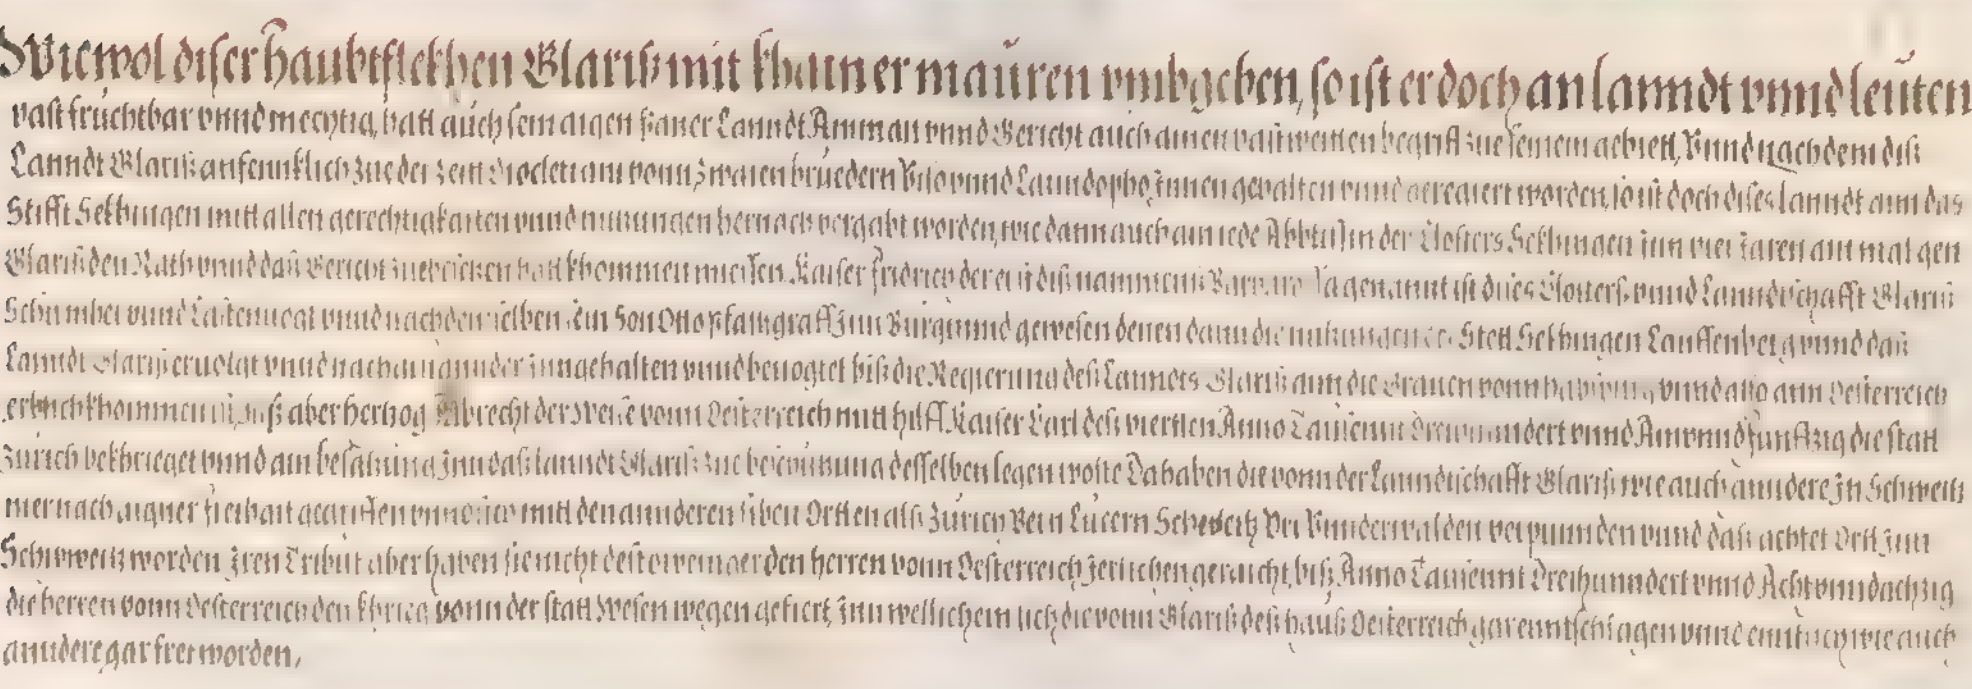 Wiewol diser haubtflekhen Glariß mit khainer mauren vmbgeben, so ist er doch an lanndt vnnd leuten
vast fruchtbar vnnd mechtig, hatt auch sein aigen paner Lanndt Amman vnnd Gericht auch ainen vast weitten begriff zue seinem gebiett, Vnnd nachdem diß
Lanndt Glariß anfennklich zue der zeitt Diocletiani vonn zwaien bruedern Vrso vnnd Lanndopho Innen gehalten vnnd geregiert worden, so ist doch dises lanndt ann das
Stifft Sekhingen mitt allen gerechtigkaiten vnnd nutzungen hernach vergabt worden, wie dann auch ain iede Abbtissin der Closters Sekhingen inn vier Jaren ain mal gen
Glariß den Rath vnnd daß Gericht zuebesiczen hatt khommen muessen. Kaiser Fridrich der erst diß nammens Barbaro ssa genannt ist dises Closters vnnd Lanndtschafft Glariß
Schirmher vnnd Castenuogt vnnd nach demselben sein Son Otto pfaltzgraff Inn Burgunnd gewesen denen dann die nutzungen der Stett Sekhingen Lauffenberg vnnd daß
Lanndt Glariß eruolgt vnnd nach ainannder inngehalten vnnd beuogtet biß die Regierung deß Lanndts Glariß ann die Grauen vonn habspurg vnnd also ann Oesterreich
erblich khommen ist, Alß aber hertzog Albrecht der Weise vonn Oesterreich mitt hilff Kaiser Carl deß viertten Anno Tausennt Dreyhunndert vnnd Ainvnndfunffzig die statt
Zurich bekhrieget vnnd ain besatzung Inn daß lanndt Glariß zue beschützung desselben legen wolte Da haben die vonn der Lanndtschafft Glariß wie auch anndere In Schweitz
mer nach aigner freihait gegriffen vnnd sich mitt den annderen siben Ortten alß Zurich Bern Lucern Schweitz Vri Vnnderwalden verpunnden vnnd daß achtet Ortt Inn
Schweitz worden Iren Tribut aber haben sie nicht destoweniger den herren vonn Oesterreich Jerlichen geraicht, biß Anno Tausennt Dreihunndert vnnd Achtvnndachzig
die herren vonn Oesterreich den khrieg vonn der statt Wesen wegen gefiert, Inn wellichem sich die vonn Glariß deß hauß Oesterreich gar enntschlagen vnnd enntlich wie auch
anndere gar frei worden,